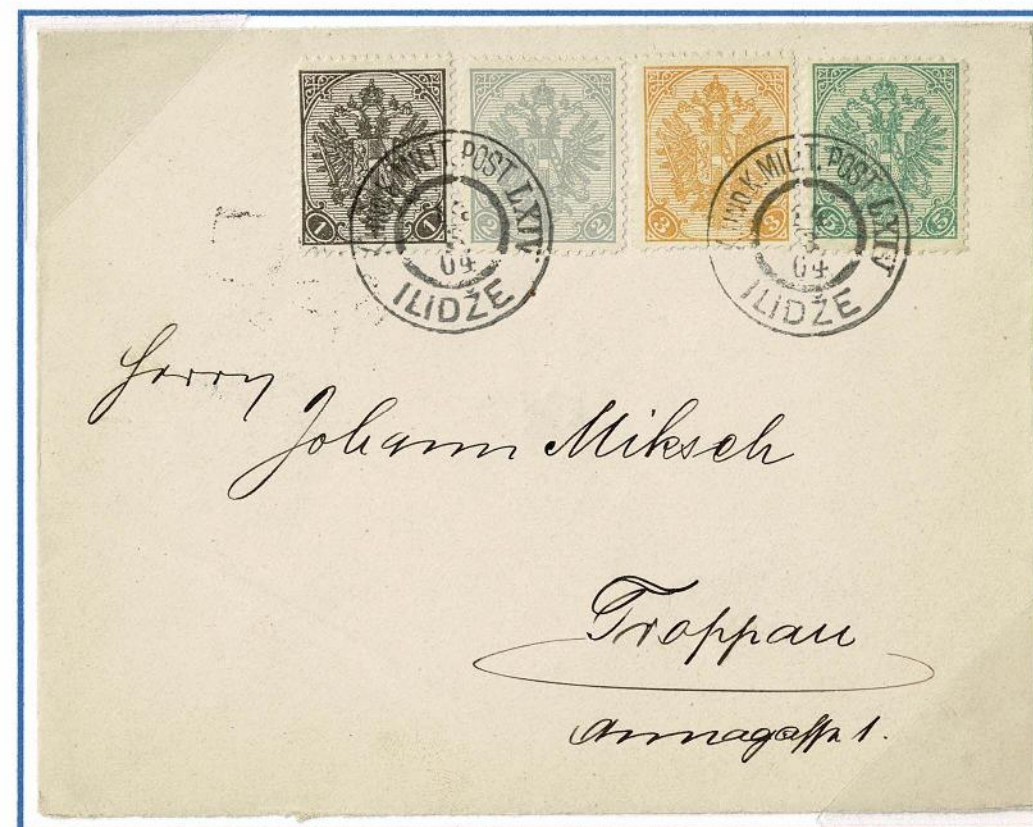 1 1 2 2 3 3 5 5
K. UND K. MILIT. POST LXIV.
04
ILIDŽE
K. UND K. MILIT. POST LXIV
04
ILIDŽE
Herrn
Johann Miksch
Troppau
Annagasse 1.